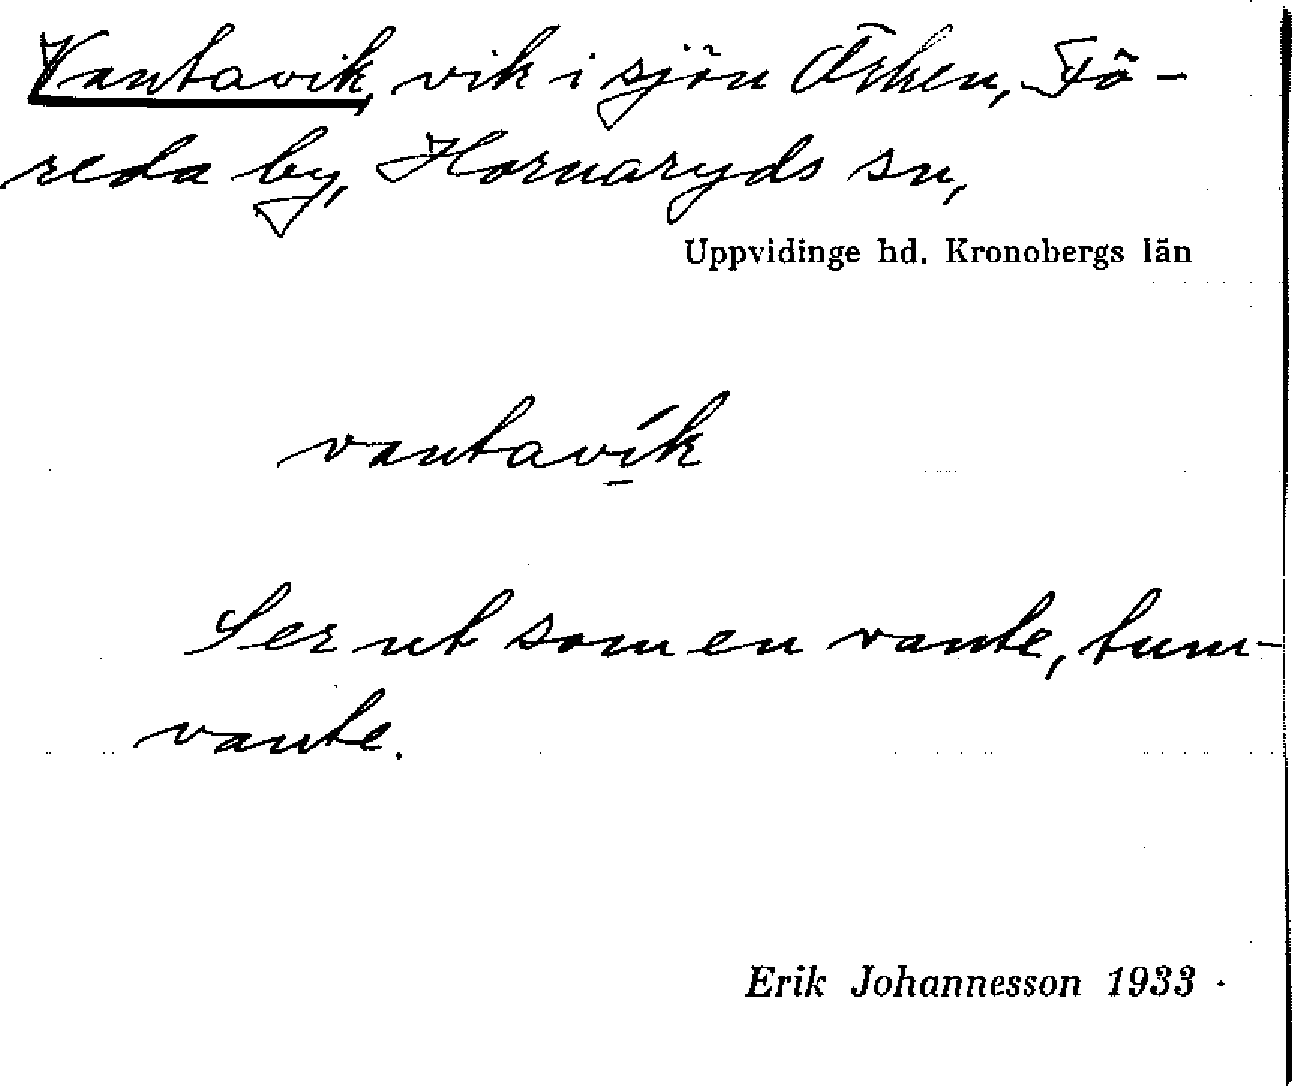 Vantavik, vik i sjön Örken, Fö-
reda by, Hornaryds sn,
Uppvidinge hd. Kronobergs län
vantavík
Ser ut som en vante, tum-
vante.
Erik Johannesson 1933